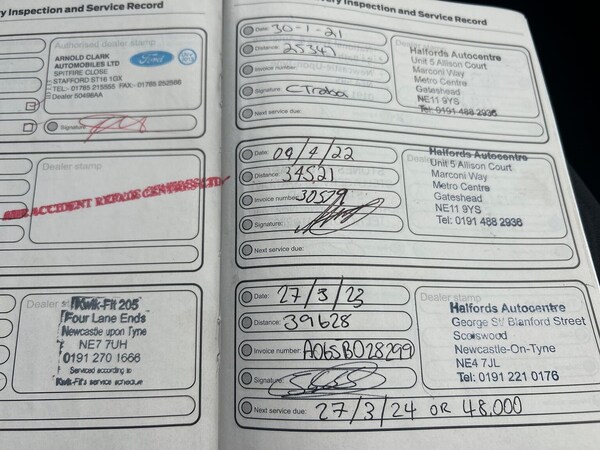 ry Inspection and Service Record
Authorised dealer stamp
ARNOLD CLARK
AUTOMOBILES LTD
SPITFIRE CLOSE
STAFFORD ST16 1GX
TEL:- 01785 215555 FAX:- 01785 252566
Dealer 50498AA
Ford
Signature:
Dealer stamp
ACCIDENT REPAIR CENTRES LTD
Dealer
Kwik-Fit 205
Four Lane Ends
Newcastle upon Tyne
NE7 7UH
0191 270 1666
Serviced according to
Kwik-Fit's service schedule
ery Inspection and Service Record
Date: 30-1-21
Distance: 25341
Invoice number:
Signature:
Next service due:
Halfords Autocentre
Unit 5 Allison Court
Marconi Way
Metro Centre
Gateshead
NE11 9YS
Tel: 0191 488 2936
Date: 04/4/22
Distance: 34521
Invoice number: 30579
Signature:
Next service due:
Halfords Autocentre
Unit 5 Allison Court
Marconi Way
Metro Centre
Gateshead
NE11 9YS
Tel: 0191 488 2936
Date: 27/3/23
Distance: 39628
Invoice number: A06SB028299
Signature:
Next service due: 27/3/24 OR 48,000
Dealer stamp
Halfords Autocentre
George St/ Blanford Street
Scotswood
Newcastle-On-Tyne
NE4 7JL
Tel: 0191 221 0176